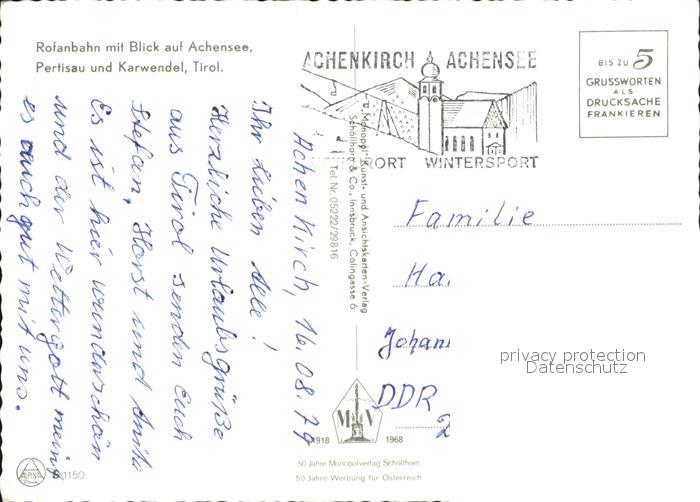 Rofanbahn mit Blick auf Achensee,
Pertisau und Karwendel, Tirol.
ACHENKIRCH ACHENSEE
ORT WINTERSPORT
BIS ZU 5
GRUSSWORTEN
ALS
DRUCKSACHE
FRANKIEREN
Achenkirch, 16.08.79
Ihr Lieben Alle!
Herzliche Urlaubsgrüße
aus Tirol senden Euch
Stefan, Horst und Anita
Es ist hier wunderschön
und der Wettergott meint
es auch gut mit uns.
Monopol Kunst- und Ansichtskarten-Verlag
Schöllhorn & Co., Innsbruck, Colingasse 6
Tel. Nr. 05222/29816
Familie
Ha.
Johann
DDR
2
privacy protection
Datenschutz
M V
1918 1968
50 Jahre Monopolverlag Schöllhorn
50 Jahre Werbung für Österreich
ALPINA
S 1150